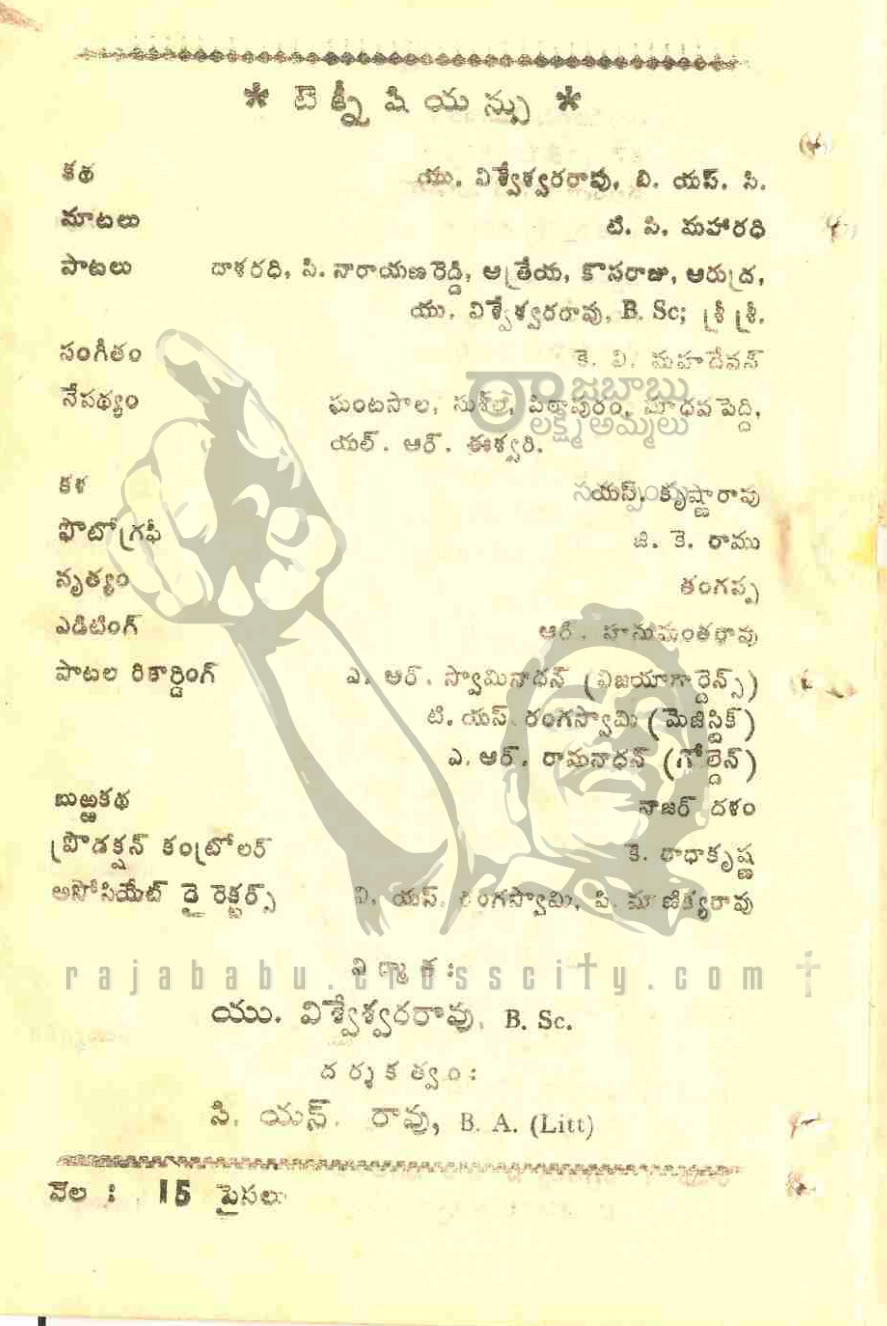 * టెక్నీషియన్సు *
కథ యు. విశ్వేశ్వరరావు, బి. యస్. సి.
మాటలు టి. పి. మహారధి
పాటలు దాశరధి, సి. నారాయణరెడ్డి, ఆత్రేయ, కొసరాజు, ఆరుద్ర,
యు. విశ్వేశ్వరరావు, B. Sc; శ్రీ శ్రీ.
సంగీతం కె. వి. మహదేవన్
నేపథ్యం ఘంటసాల, సుశీల, పిఠాపురం, మాధవపెద్ది,
యల్. ఆర్. ఈశ్వరి.
రాజబాబు
లక్ష్మీ అమ్మలు
కళ కృష్ణారావు
ఫొటోగ్రఫీ జి. కె. రాము
నృత్యం తంగప్ప
ఎడిటింగ్ ఆర్. హనుమంతరావు
పాటల రికార్డింగ్ ఎ. ఆర్. స్వామినాధన్ (విజయాగార్డెన్స్)
టి. యస్. రంగస్వామి (మెజిస్టిక్)
ఎ. ఆర్. రామనాధన్ (గోల్డెన్)
బుఱ్ఱకథ నాజర్ దళం
ప్రొడక్షన్ కంట్రోలర్ కె. రాధాకృష్ణ
అసోసియేట్ డైరెక్టర్స్ వి. యస్. రంగస్వామి, పి. మాణిక్యరావు
నిర్మాత:
rajababu.crosscity.com
యు. విశ్వేశ్వరరావు, B. Sc.
దర్శకత్వం:
సి. యస్. రావు, B. A. (Litt)
వెల : 15 పైసలు